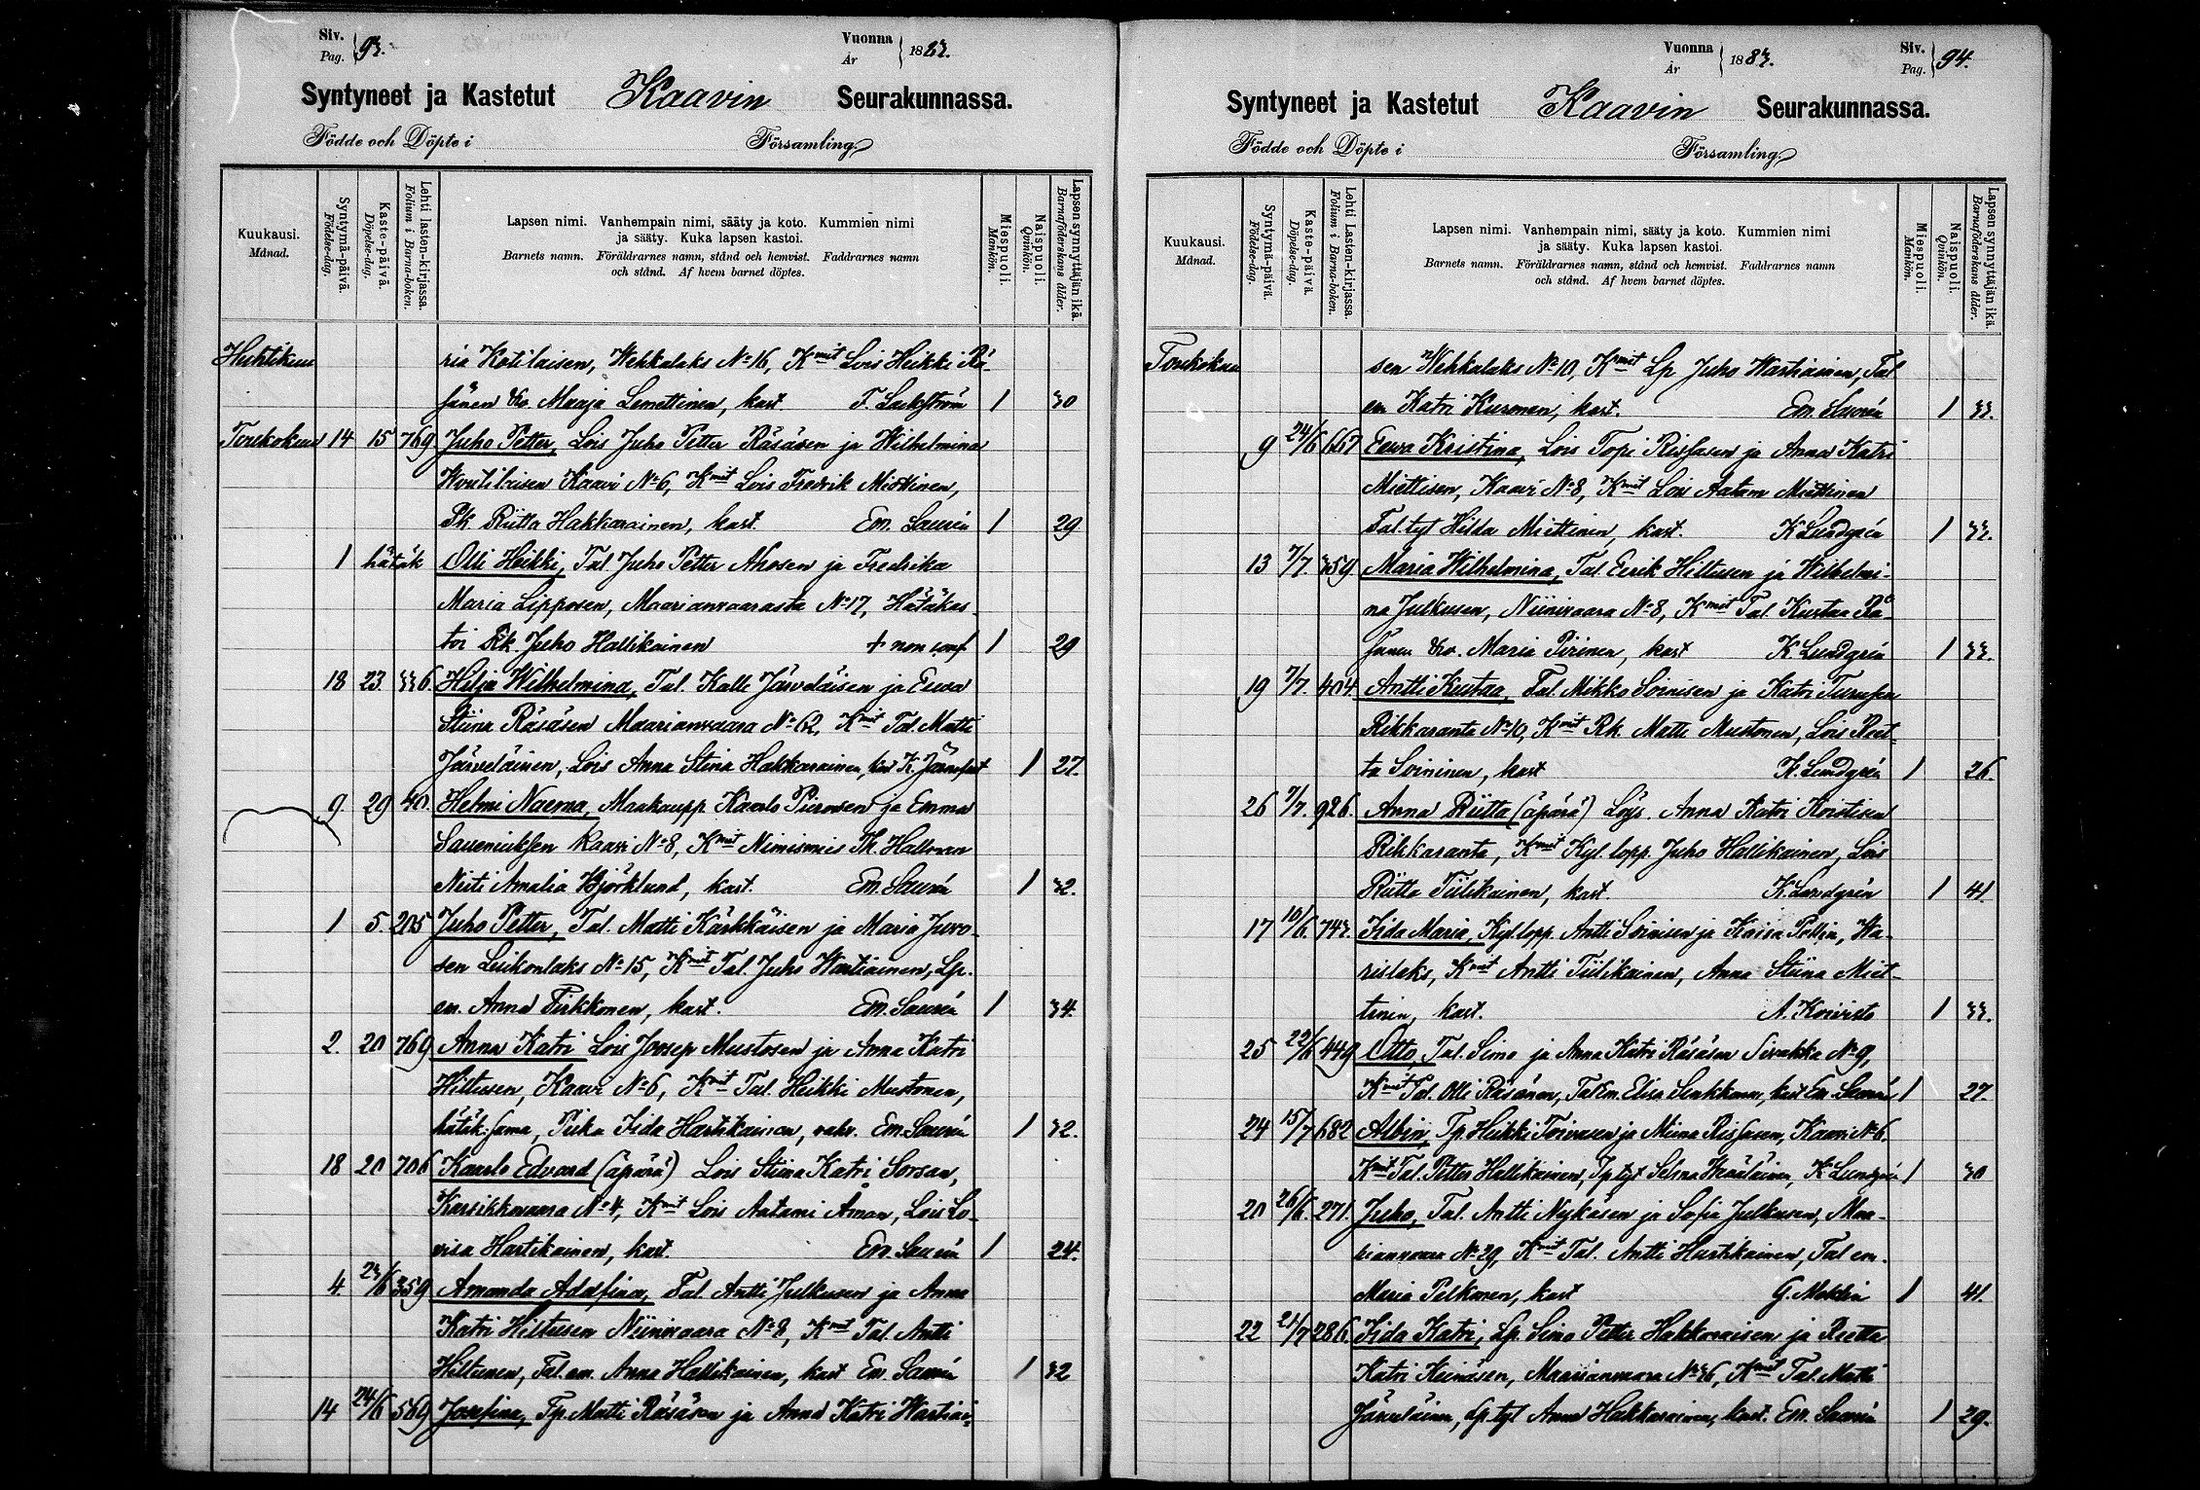 Siv. Pag. 93.
Vuonna År 1883.
Syntyneet ja Kastetut Kaavin Seurakunnassa.
Födde och Döpte i Församling
Kuukausi. Månad.
Syntymä-päivä. Födelse-dag.
Kaste-päivä. Döpelse-dag.
Lehti lasten-kirjassa. Folium i Barna-boken.
Lapsen nimi. Vanhempain nimi, sääty ja koto. Kummien nimi
ja sääty. Kuka lapsen kastoi.
Barnets namn. Föräldrarnes namn, stånd och hemvist. Faddrarnes namn
och stånd. Af hvem barnet döptes.
Miespuoli. Mankön.
Naispuoli. Qvinkön.
Lapsen synnyttäjän ikä. Barnaföderskans ålder.
Huhtikuu ria Kotilaisen, Wehkalaks No 16, Kmit Lois Heikki Rä-
sänen Vro. Maaja Lemettinen, kast. 1 30
Toukokuu 14 15 769 Juho Petter, Lois Juho Petter Räsäsen ja Wilhelmina
Woutilaisen Kaavi No 6, Kmit Lois Fredrik Miettinen,
Pk Riitta Hakkarainen, kast. Em. Saurén 1 29
1 hätäk Olli Heikki, Tal. Juho Petter Ahosen ja Fredrika
Maria Lipposen, Maarianvaarasta No 17, Hätäkas-
toi Rk. Juho Hallikainen + non conf 1 29
18 23 336. Hilja Wilhelmina, Tal. Kalle Järveläisen ja Eeva
Stiina Räsäsen Maarianvaara No 62, Kmit Tal. Matti
Järveläinen, Lois Anna Stina Hakkarainen, kast K. 1 27.
9. 29 40. Helmi Naema, Maakaupp Kaarlo Piirosen ja Emma
Saxeniuksen Kaavi No 8, Kmit Nimismies Th. Hallman
Neiti Amalia Björklund, kast. Em. Saurén 1 32.
1 5. 205 Juho Petter, Tal. Matti Kärkkäisen ja Maria Juvo-
sen Luikonlaks No 15, Kmit Tal. Juho Wartiainen, Lp.
em. Anna Pirkkonen, kast. Em. Saurén 1 34.
2. 20 769 Anna Katri Lois Joosep Mustosen ja Anna Katri
Hiltusen, Kaavi No 6, Kmit Tal. Heikki Mustonen,
hätäk. sama, Piika Iida Hartikainen, vahv. Em. Saurén 1 32.
18 20 706 Kaarlo Edvard (äpärä) Lois Stiina Katri Sorsan,
Karsikkovaara No 4, Kmit Lois Aatami Åman, Lois Lo-
visa Hartikainen, kast. Em. Saurén 1 24.
4. 23/6 359 Amanda Adolfina, Tal. Antti Julkusen ja Anna
Katri Hiltusen Niinivaara No 8, Kmit Tal. Antti
Hiltunen, Tal. em. Anna Hallikainen, kast Em. Saurén 1 32
14 24/6 569 Josefina, Tp. Matti Räsäsen ja Anna Katri Wartiai-
Vuonna År 1883.
Siv. Pag. 94.
Syntyneet ja Kastetut Kaavin Seurakunnassa.
Födde och Döpte i Församling
Kuukausi. Månad.
Syntymä-päivä. Födelse-dag.
Kaste-päivä. Döpelse-dag.
Lehti Lasten-kirjassa. Folium i Barna-boken.
Lapsen nimi. Vanhempain nimi, sääty ja koto. Kummien nimi
ja sääty. Kuka lapsen kastoi.
Barnets namn. Föräldrarnes namn, stånd och hemvist. Faddrarnes namn
och stånd. Af hvem barnet döptes.
Miespuoli. Mankön.
Naispuoli. Qvinkön.
Lapsen synnyttäjän ikä. Barnaföderskans ålder.
Toukokuu sen Wehkalaks No 10, Kmit Lp Juho Wartiainen, Tal
em Katri Kurmen, kast. Em. Saurén 1 33.
9 24/6 667 Eewa Kristina, Lois Topi Rissasen ja Anna Katri
Miettisen, Kaavi No 8, Kmit Lois Aatam Miettinen
Tal. tyt Hilda Miettinen, kast. K Lundgrén 1 32.
13 7/7. 359 Maria Wilhelmina, Tal. Eerik Hiltusen ja Wilhelmi-
na Julkusen, Niinivaara No 8, Kmit Tal. Kustaa Rä-
sänen Vro. Maria Pirinen, kast K Lundgrén 1 33.
19 7/7. 404 Antti Kustaa, Tal. Mikko Soinisen ja Katri
Rikkaranta No 10, Kmit Rk. Matti Mustonen, Lois Reet-
ta Soininen, kast K. Lundgrén 1 26.
26 7/7. 926. Anna Riitta (äpärä) Lois. Anna Katri Koistisen
Rikkaranta, Kmit Kyl. lopp. Juho Hallikainen, Lois
Riitta Tiilikainen, kast. K. Lundgrén 1 41.
17 10/6. 743. Iida Maria, Kyl lopp. Antti Soinisen ja Kaisa Pollin, Wa-
rislaks, Kmit Antti Tiilikainen, Anna Stiina Miet-
tinen, kast. A. Koivisto 1 33.
25 22/6 449 Otto, Tal. Simo ja Anna Katri Räsäsen Sivakka No 9,
Kmit Tal. Olli Räsänen, Tal em. Elisa kast Em Saurén 1 27.
24 15/7 682 Albin, Tp. Heikki Toivasen ja Miina Rissasen, Kaavi No 6
Kmit Tal. Petter Hallikainen, Tp tyt Selma Määläinen, K Lundgrén 1 30
20 26/6. 271. Juho, Tal. Antti Nykäsen ja Sofia Julkusen, Maa-
rianvaara No 29, Kmit Tal. Antti Hartikainen, Tal em.
Maria Pelkonen, kast G. Meklin 1 41.
22 21/7 286 Iida Katri, Lp. Simo Petter Hakkaraisen ja Reetta
Katri Keinäsen, Maarianvaara No 36, Kmit Tal. Matti
Järveläinen, Lp. tyt Anna Hakkarainen, kast. Em. Saurén 1 29.